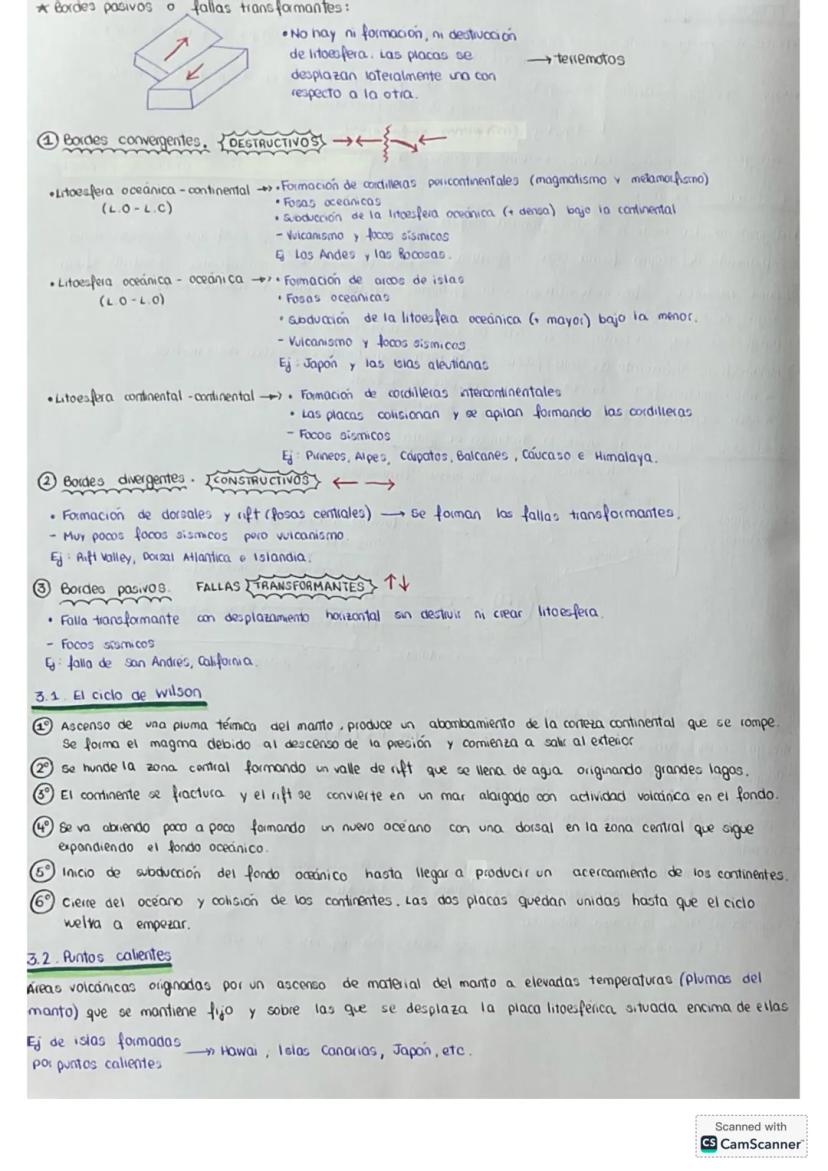 ★ Bordes pasivos o fallas transformantes:
• No hay ni formación, ni destrucción
de litoesfera. Las placas se
desplazan lateralmente una con
respecto a la otra.
→ terremotos
① Bordes convergentes. {DESTRUCTIVOS} →←
• Litoesfera oceánica - continental →• Formación de cordilleras pericontinentales (magmatismo y metamorfismo)
(L.O - L.C)
• Fosas oceánicas
• Subducción de la litoesfera oceánica (+ densa) bajo la continental
- Vulcanismo y focos sísmicos
Ej Los Andes y las Rocosas.
• Litoesfera oceánica - oceánica → • Formación de arcos de islas
(L.O - L.O)
• Fosas oceánicas
• Subducción de la litoesfera oceánica (+ mayor) bajo la menor.
- Vulcanismo y focos sísmicos
Ej: Japón y las islas aleutianas
• Litoesfera continental - continental → • Formación de cordilleras intercontinentales
• Las placas colisionan y se apilan formando las cordilleras
- Focos sísmicos
Ej: Pirineos, Alpes, Cárpatos, Balcanes, Cáucaso e Himalaya.
② Bordes divergentes. {CONSTRUCTIVOS} ← →
• Formación de dorsales y rift (fosas centrales) → se forman las fallas transformantes.
- Muy pocos focos sísmicos pero vulcanismo
Ej: Rift Valley, Dorsal Atlantica e Islandia.
③ Bordes pasivos. FALLAS {TRANSFORMANTES} ↑↓
• Falla transformante con desplazamiento horizontal sin destruir ni crear litoesfera.
- Focos sísmicos
Ej: falla de San Andrés, California.
3.1. El ciclo de Wilson
1º Ascenso de una pluma térmica del manto, produce un abombamiento de la corteza continental que se rompe.
Se forma el magma debido al descenso de la presión y comienza a salir al exterior
2º Se hunde la zona central formando un valle de rift que se llena de agua originando grandes lagos.
3º El continente se fractura y el rift se convierte en un mar alargado con actividad volcánica en el fondo.
4º Se va abriendo poco a poco formando un nuevo océano con una dorsal en la zona central que sigue
expandiendo el fondo oceánico.
5º Inicio de subducción del fondo oceánico hasta llegar a producir un acercamiento de los continentes.
6º Cierre del océano y colisión de los continentes. Las dos placas quedan unidas hasta que el ciclo
vuelva a empezar.
3.2. Puntos calientes
Áreas volcánicas originadas por un ascenso de material del manto a elevadas temperaturas (plumas del
manto) que se mantiene fijo y sobre las que se desplaza la placa litoesférica situada encima de ellas
Ej de islas formadas → Hawai, Islas Canarias, Japón, etc.
por puntos calientes
Scanned with
CS CamScanner